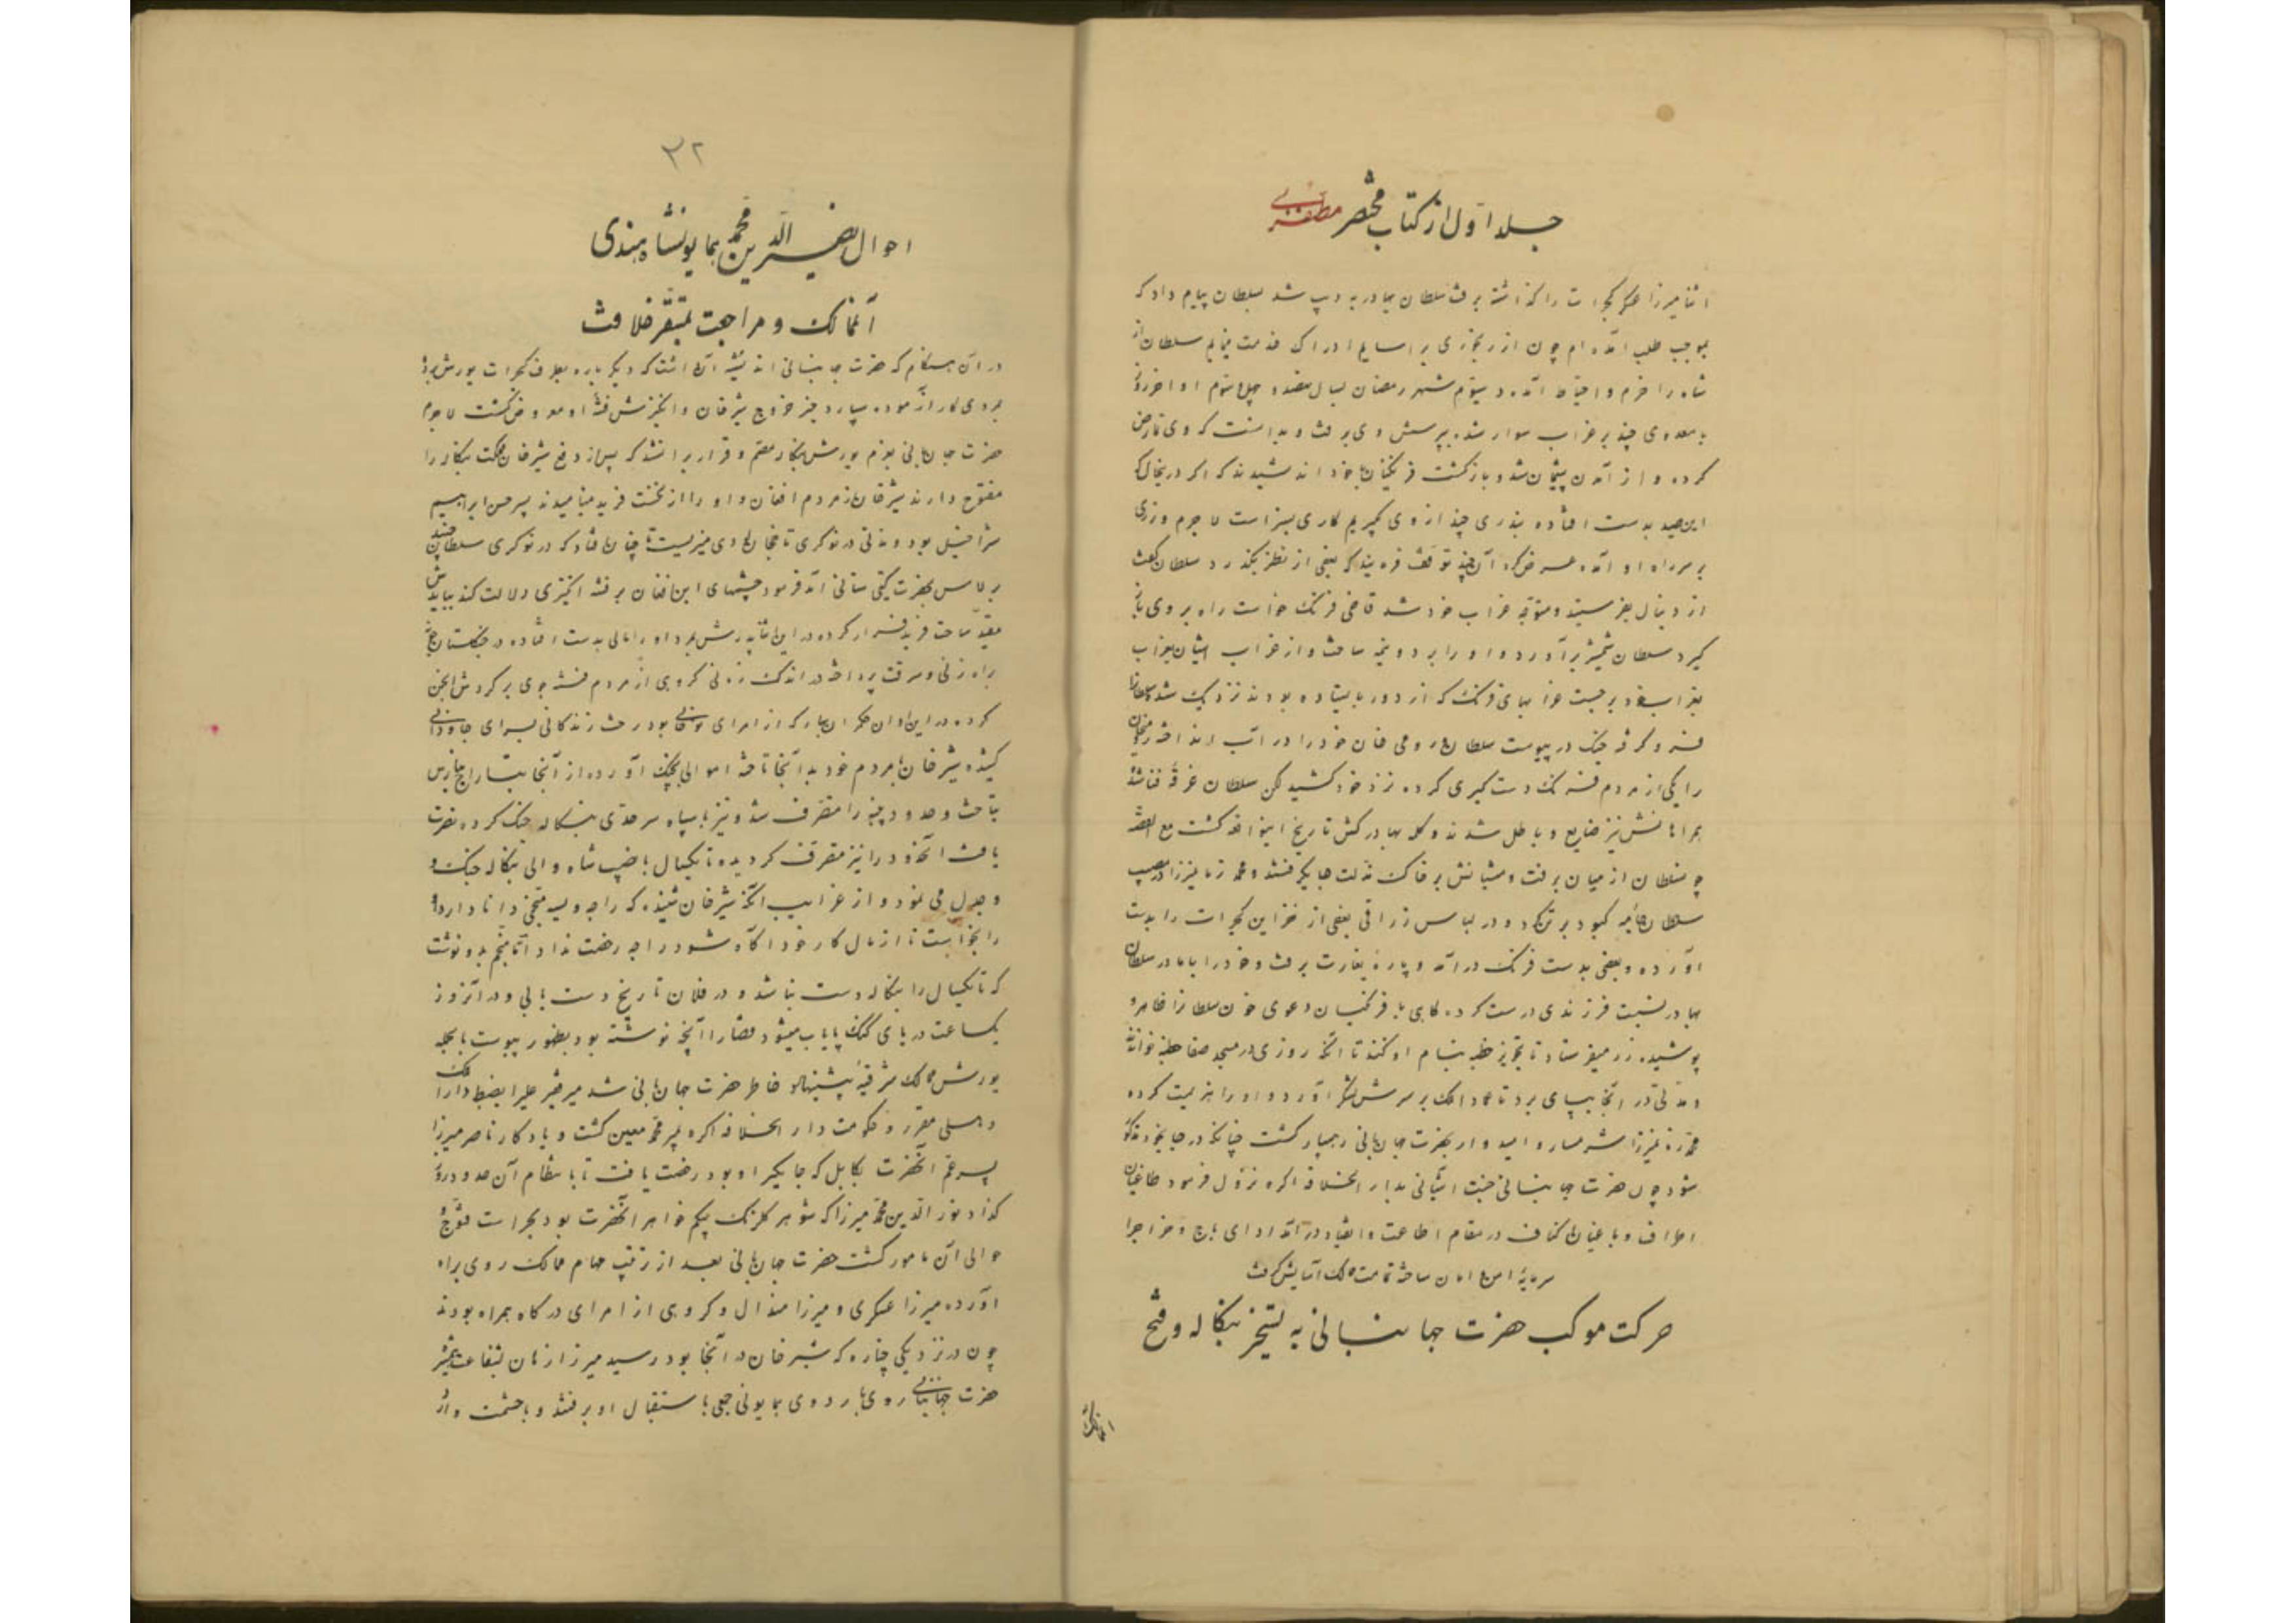 جلد اول از کتاب مختصر مظفری
اثنا میرزا عسکر کجرات را گذاشته برفت سلطان بهادر به دیپ شد سلطان پیام داد که
بموجب طلب آمده ام چون از رنجوری بر اسایع ادراک خدمت نمایم سلطان از
شاه را حزم و احتیاط آمده سیوم شهر رمضان لسال نهصد و چهل و سوم او اخر روز
با معدودی چند بر غراب سوار شده بپرسش وی برفت و بدانست که وی تمارض
کرده و از آمدن پشیمان شد و بازگشت فرنگیان با خود اندیشیدند که اکر در پنحال که
این صید بدست افتاده بندری چند از وی بگیریم کاری بسزاست لاجرم وزری
بر سر راه او آمده عرض کرد آن چند توقف فرمایند که بعضی از نظر بگذرد سلطان گفت
از دنبال بفرستید و متوجه غراب خود شد قاضی فرنک خواست راه بر وی باز
گیرد سلطان شمشیر برآورد و او را بر دو نیمه ساخت و از غراب ایشان بغراب
بغراب خود برجست غرابهای فرنک که از دور بایستاده بودند نزدیک شد سلطانرا
فرو گرفته جنک در پیوست سلطان با رومی خان خود را در آب انداخته رومیخان
را یکی از مردم فرنک دستگیری کرده نزد خود کشید لکن سلطان غرقه فنا شد
همراهانش نیز ضایع و باطل شدند و کله بهادر کش تاریخ این واقعه کشت مع القصه
چو سلطان از میان برفت و متبانش بر خاک مذلت جایگیر فتند و محمد زمان میرزا در مصیب
سلطان جامه کبود بر تن کرد و در لباس زراقی بعضی از خزاین کجرات را بدست
آورده و بعضی بدست فرنک درآمد و پاره بغارت برفت و خود را با مادر سلطان
بهادر نسبت فرزندی درست کرده گاهی با فرنگیان دعوی خون سلطانرا ظاهر و
پوشیده زر میفرستاد تا تجویز خطبه بنام او کنند تا آنکه روزی در مسجد صفا خطبه خوانند
و مدتی در آنجا بسپای برد تا عماد الملک بر سرش لشکر آورد و او را هزیمت کرده
محمد زمان میرزا شرمسار و امیدوار بحضرت جهانبانی رهسپار کشت چنانکه در جای خود مذکور
شود چون حضرت جهانبانی جنت آشیانی بدار الخلافه اکره نزول فرمود طاغیان
اطراف و باغیان اکناف در مقام اطاعت و انقیاد درآمده ادای باج و خراج را
سرمایه امن و امان ساخته تمامت ممالک آسایش گرفت
حرکت موکب حضرت جهانبانی به تسخیر بنگاله و فتح
آنممالک
۳۲
احوال نصیر الدین محمد همایونشاه هندی
آنممالک و مراجعت بمستقر خلافت
در آن هنگام که حضرت جهانبانی اندیشه آن داشت که دیگر باره بطرف کجرات یورش برد
مردی کار آزموده سپارد خبر خروج شیرخان و انگیزش فتنه او معروض گشت لاجرم
حضرت جهانبانی بعزم یورش بنگاله مصمم و قرار بر این شد که پس از دفع شیرخان مملکت بنگاله را
مفتوح دارند شیرخان از مردم افغان و او را از نخست فرید مینامیدند پسر حسن ابراهیم
شیرا خیل بود و مدتی در نوکری تاجخان لودی میزیست تا چنان افتاد که در نوکری سلطان جنید
برلاس بحضرت گیتی ستانی آمد فرمود چشمهای این افغان بر فتنه انگیزی دلالت کند ببایدش
مقید ساخت فرید فرار کرده در این اثنا پدرش بمرد او را مالی بدست افتاده در جنگلستان
براه زنی و سرقت پرداخته در اندک زمانی گروهی از مردم فتنه جوی بر گردش انجمن
کرده در این اوان حکمران بهار که از امرای نوحانی بود رخت زندگانی بسرای جاودانی
کشیده شیرخان با مردم خود بدانجا تاخته اموالی بچنک آورده از آنجا بتاراج بنارس
بتاخت و حدود پتنه را متصرف شد و نیز با سپاه سرحدی بنگاله جنک کرده نصرت
یافت آنحدود را نیز متصرف گردیده تا یکسال با نصیب شاه والی بنگاله جنک و
و جدل می نمود و از غرایب آنکه شیرخان شنیده که راجه ودیسه منجمی دانا دارد او
را بخواست تا از مال کار خود آگاه شود راجه رخصت نداد اما منجم بدو نوشت
که تا یکسال را بنگاله دست نباشد و در فلان تاریخ دست یابی و در آنروز
یکساعت دریای گنک پایاب میشود قضا را آنچه نوشته بود بظهور پیوست بالجمله
یورش ممالک شرقیه پیشنهاد خاطر حضرت جهانبانی شد میر فقیر علی را بضبط دارالملک
دهلی مقرر و حکومت دار الخلافه اکره بمیر محمد معین گشت و یادگار ناصر میرزا
پسر عم آنحضرت بکابل که جایگیر او بود رخصت یافت تا بانتظام آن حدود رود
کذا نور الدین محمد میرزا که شوهر گلرنک بیگم خواهر آنحضرت بود بحراست قنوج و
حوالی آن مامور گشت حضرت جهانبانی بعد از ترتیب مهام ممالک روی براه
آورده میرزا عسکری و میرزا هندال و گروهی از امرای درگاه همراه بودند
چون در نزدیکی چناره که شیرخان در آنجا بود رسید میرزا زمان بشفاعت
حضرت جهانبانی روی باردوی همایونی جمعی باستقبال او برفتند و باحشمت و از